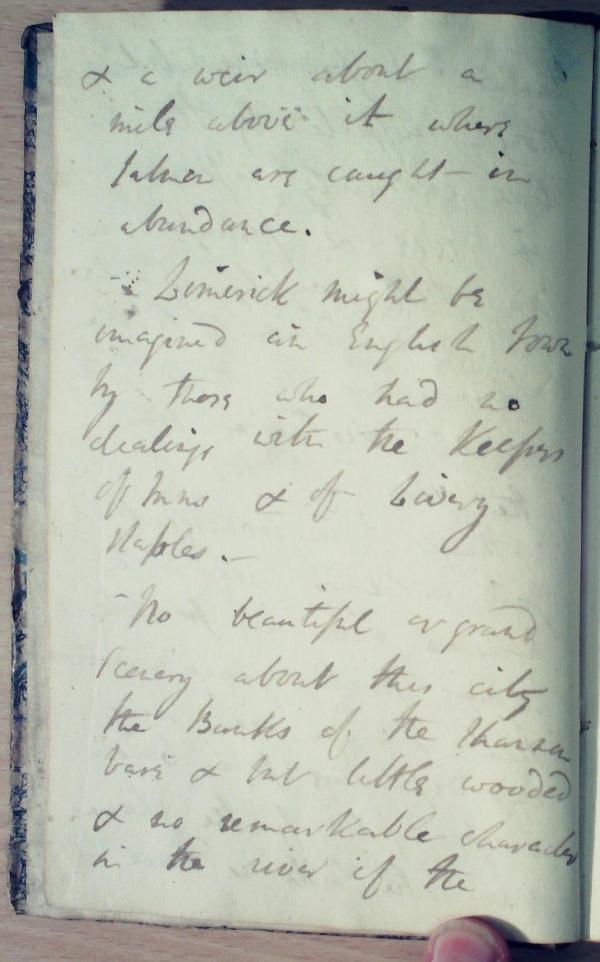 & a weir about a
mile above it where
Salmon are caught - in
abundance.
- Limerick might be
imagined an English town
by those who had no
dealings with the Keepers
of Inns & of Livery
Stables. -
- No beautiful or grand
Scenery about this city
the Banks of the Shannon
bare & but little wooded
& no remarkable character
in the river if the